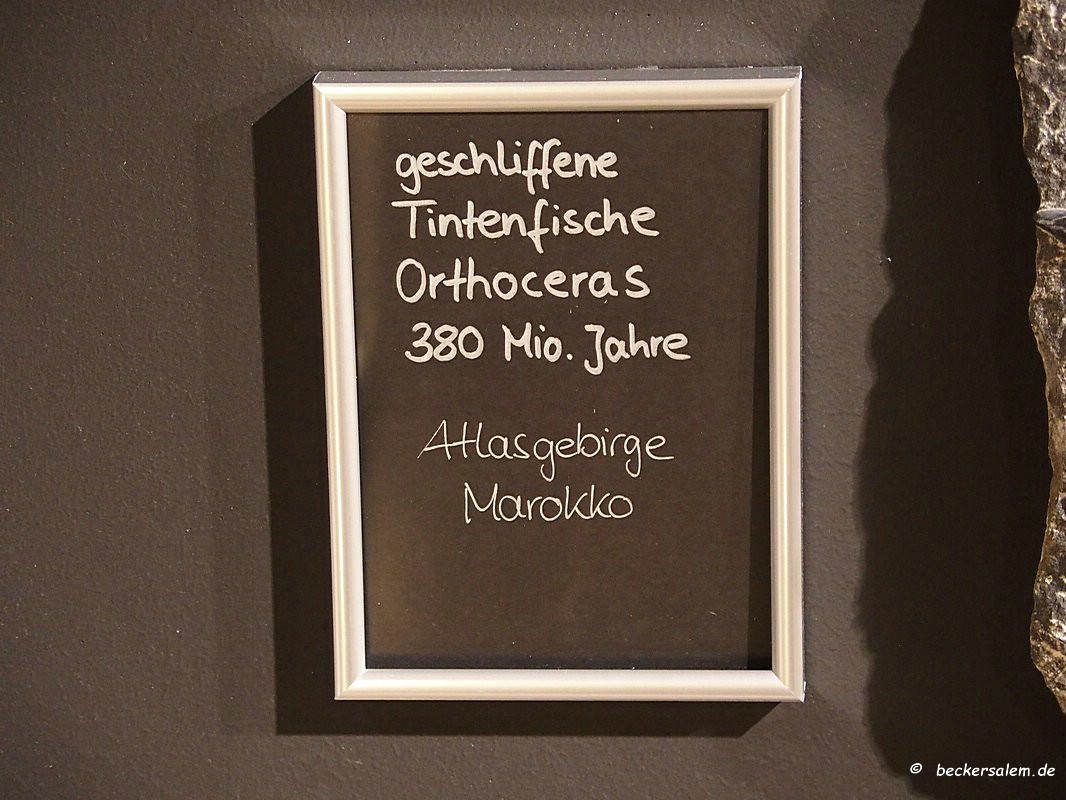 geschliffene
Tintenfische
Orthoceras
380 Mio. Jahre
Atlasgebirge
Marokko
© beckersalem.de